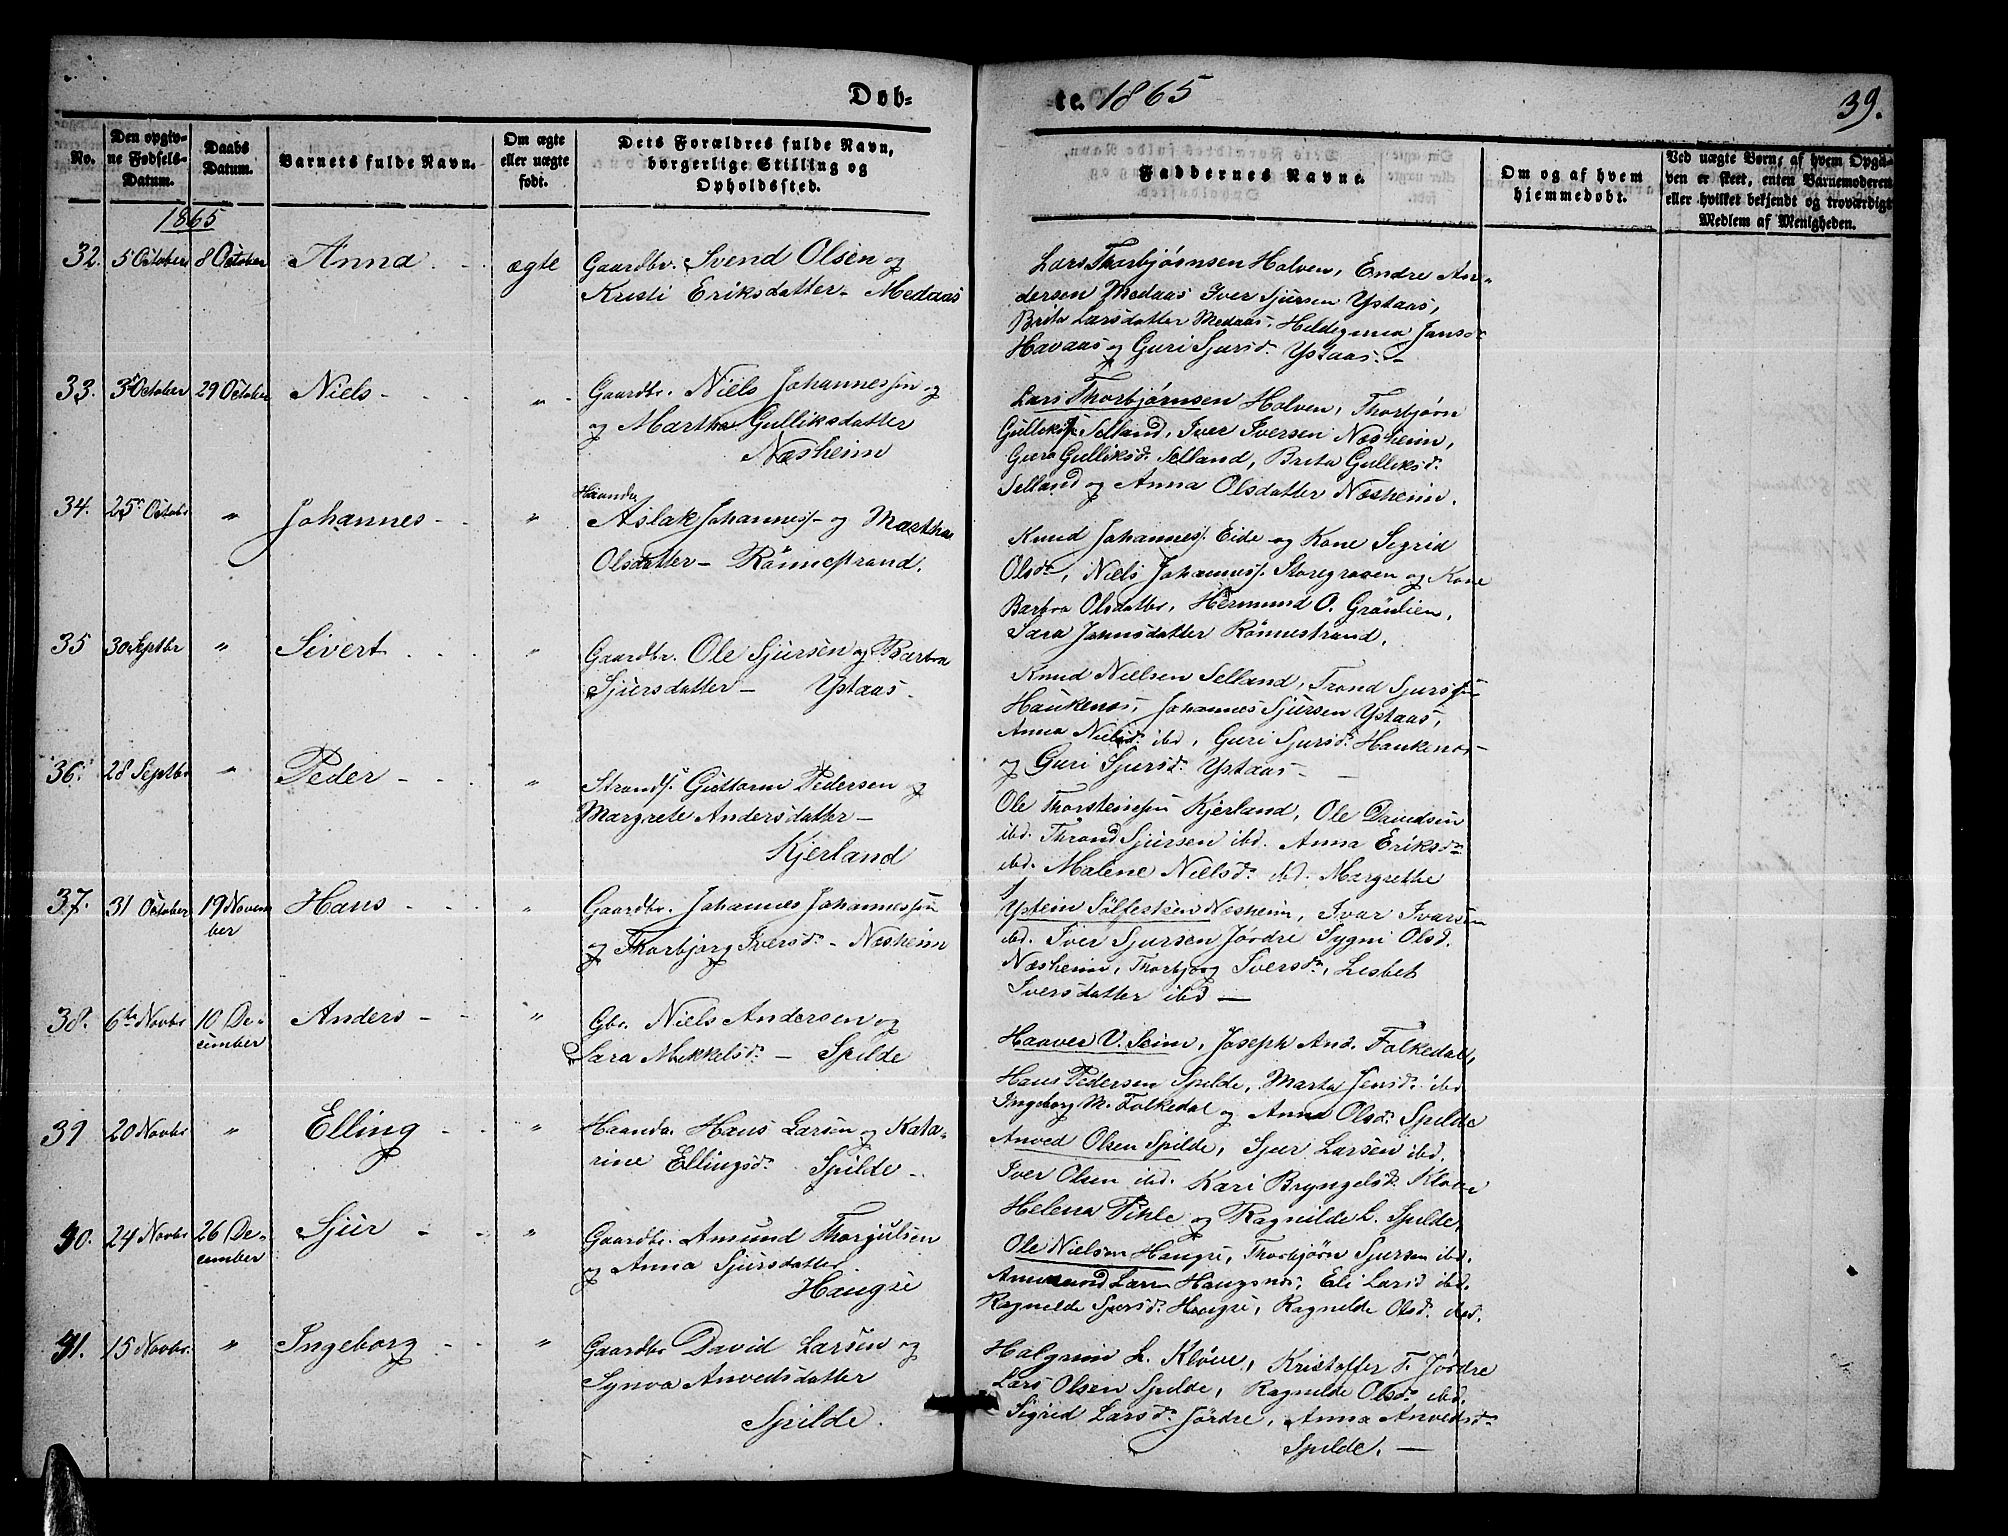 Døb-
te. 1865
39.
No.
Den opgiv-
ne Fødsels-
Datum.
Daabs
Datum.
Barnets fulde Navn.
Om ægte
eller uægte
født.
Dets Forældres fulde Navn,
borgerlige Stilling og
Opholdssted.
Faddernes Navne.
Om og af hvem
hjemmedøbt.
Ved uægte Børn, af hvem Opgi-
ven er skeet, enten Barnemoderen
eller hvilket bekjendt og troværdigt
Medlem af Menigheden.
1865
32. 5 October 8 October Anna - - ægte
Gaardbr. Svend Olsen og
Kristi Eriksdatter - Medaas
Lars Thorbjørnsen Holven, Endre An-
dersen Medaas Iver Sjursen Ystaas,
Brita Larsdatter Medaas, Jansd.
Havaas og Guri Sjursd. Ystaas. -
33. October 29 October Niels - - "
Gaardbr. Niels Johannessen og
og Martha Gulliksdatter
Næsheim
Lars Thorbjørnsen Holven, Thorbjørn
Gulliks. Selland, Iver Iversen Næsheim,
Gulliksd. Selland, Brita Gulliksd.
Selland og Anna Olsdatter Næsheim.
34. 25 Octobr " Johannes - - "
Haandv.
Aslak Johanness - og Martha
Olsdatter - Rönnestrand.
Knud Johanness. Eide og Kone Sigrid
Olsdr, Niels Johanness. Storegraven og Kone
Barbra Olsdatter, Hermund O. Grönlien,
Sara Jansdatter Rönnestrand.
35 30 Septbr " Sivert - - "
Gaardbr. Ole Sjursen og Barbra
Sjursdatter - Ystaas -
Knud Nielsen Selland, Trond Sjurssen
Haukenæs, Johannes Sjursen Ystaas,
Anna Nielsd. ibd, Guri Sjursd. Haukenæs-
og Guri Sjursd. Ystaas -
36. 28 Septbr " Peder - - "
Strands. Guttorm Pedersen og
Margrete Andersdatter -
Kjerland
Ole Thorsteinssen Kjerland, Ole Davidsen
ibd. Thrond Sjursen ibd. Anna Eriksdr.
ibd. Malene Nielsd. ibd. Margrethe
37. 31 October 19 Novem
ber
Hans - - "
Gaardbr. Johannes Johannessen
og Thorbjørg Iversd. - Næsheim
Ystein Sölfestsen Næsheim, Ivar Ivarsen
ibd. Iver Sjursen Jørdre Sygni Olsd.
Næsheim, Thorbjørg Iversd, Lisbet
Iversdatter ibd -
38. 6te Novbr 10 De-
cember
Anders - - "
Gbr. Niels Andersen og
Sara Mikkelsd. - Spilde
Haaver V. Seim, Joseph And. Folkedal,
Hans Pedersen Spilde, Marta Jensd. ibd
Ingeborg M. Folkedal og Anna Olsd. Spilde
39 20 Novbr " Elling - - "
Haandv. Hans Larsen og Kata-
rine Ellingsd. Spilde -
Anved Olsen Spilde, Sjur Larsen ibd.
Iver Olsen ibd. Kari Bryngelsd. Kløve
Helena Pihle og Ragnilde L. Spilde.
40. 24 Novbr 26 De-
cember
Sjur - - "
Gaardbr. Amund Thorgulsen
og Anna Sjursdatter.
Hangse
Ole Nielsen Hangse, Thorbjørn Sjursen ibd.
Larsn Hangsnæs, Eli Larsd ibd.
Ragnilde Sjursd. Hangse, Ragnilde Olsd. ibd.
41. 15 Novbr. " Ingeborg - - "
Gaardbr David Larsen og
Synva Anvedsdatter
Spilde.
Halgrim L. Kløve, Kristoffer T. Jørdre
Lars Olsen Spilde, Ragnilde Olsd. ibd.
Sigrid Larsd. Jördre, Anna Anvedsdr.
Spilde. -